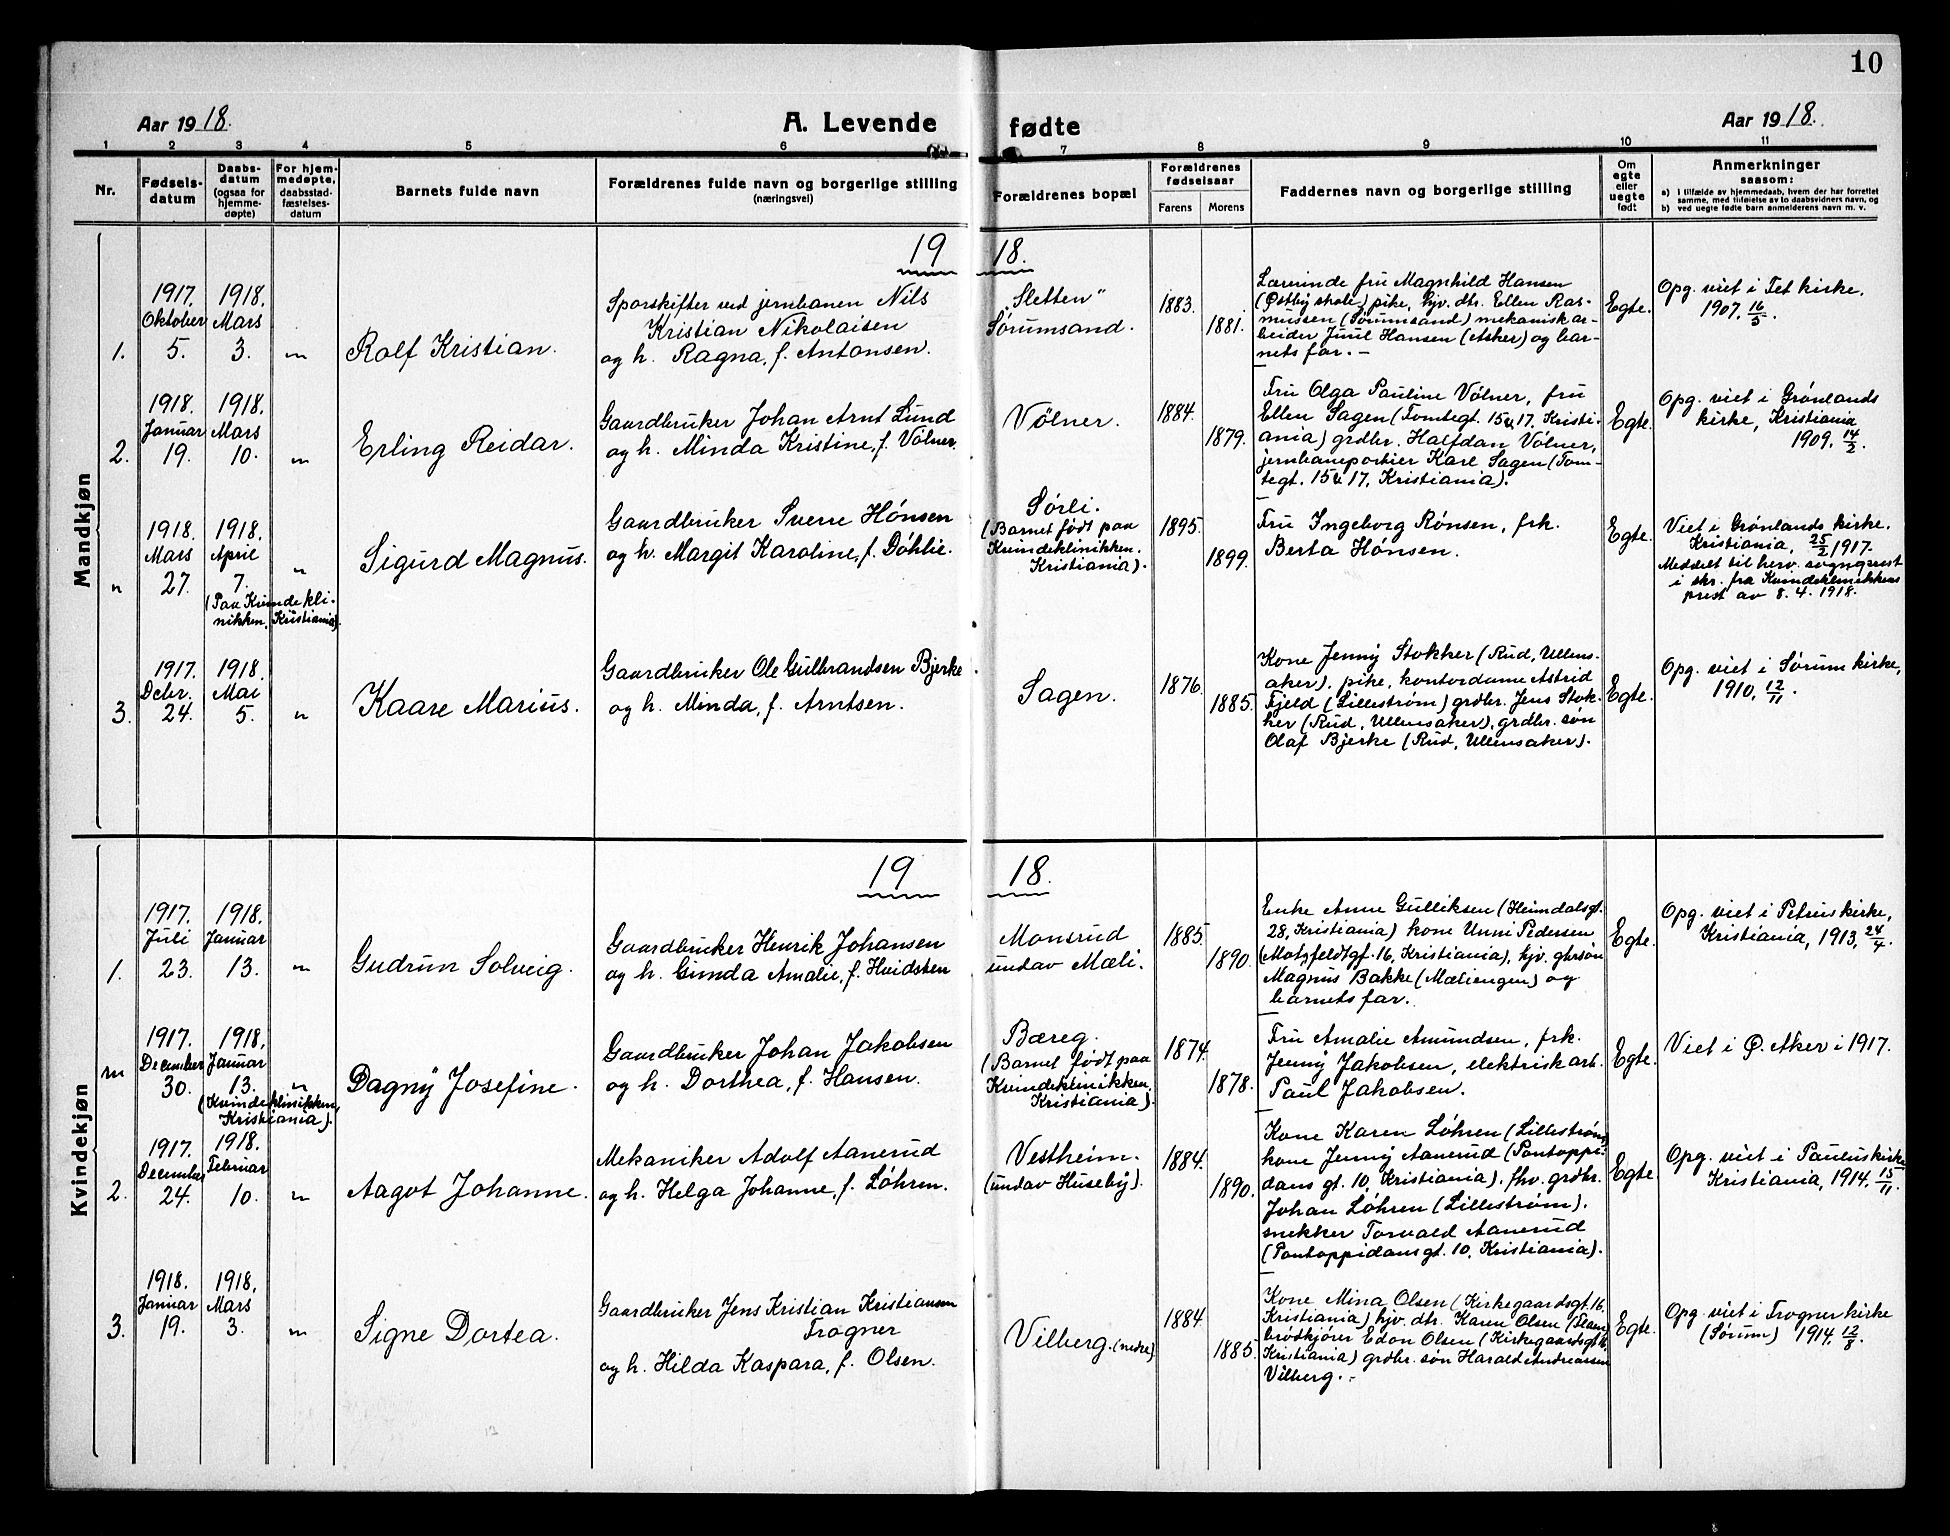 10
Aar 1918.
A. Levende
fødte
Aar 1918.
1 2 3 4 5 6 7 8 9 10 11
Nr.
Fødsels-
datum
Daabs-
datum
(ogsaa for
hjemme-
døpte)
For hjem-
medøpte,
daabsstad-
fæstelses-
datum
Barnets fulde navn
Forældrenes fulde navn og borgerlige stilling
(næringsvei)
Forældrenes bopæl
Forældrenes
fødselsaar
Farens
Morens
Faddernes navn og borgerlige stilling
Om
egte
eller
uegte
født
Anmerkninger
saasom:
a) I tilfælde av hjemmedaab, hvem der har forrettet
samme, med tilføielse av to daabsvidners navn, og
b) ved uegte fødte barn anmelderens navn m. v.
Mandkjøn
19
18.
1.
1917.
Oktober
5.
1918.
Mars
3.
"
Rolf Kristian.
Sporskifter ved jernbanen Nils
Kristian Nikolaisen
og h. Ragna, f. Antonsen.
"Sletten"
Sørumsand.
1883.
1881.
Lærerinde fru Magnhild Hansen
(Østby skole) pike, hjv. dtr. Ellen Ras-
mussen (Sørumsand) mekanisk ar-
beider Juul Hansen (Asker) og bar-
nets far. -
Egte.
Opg. viet i Fet kirke,
1907, 16/5.
2.
1918.
Januar
19.
1918.
Mars
10.
"
Erling Reidar.
Gaardbruker Johan Arnt Lund
og h. Minda Kristine, f. Vølner.
Vølner.
1884.
1879.
Fru Olga Pauline Vølner, fru
Ellen Sagen (Tomtegt. 15 v. 17, Kristi-
ania) grdbr. Halfdan Vølner,
jernbaneportier Karl Sagen (Tom-
tegt. 15 v. 17, Kristiania).
Egte.
Opg. viet i Grønlands
kirke, Kristiania
1909, 14/2.
"
1918.
Mars
27.
1918.
April
7.
(Paa Kvindekli-
nikken, Kristiania).
"
Sigurd Magnus.
Gaardbruker Sverre Hønsen
og h. Margit Karoline, f. Døhlie.
Sørli.
(Barnet født paa
Kvindeklinikken.
Kristiania).
1895.
1899.
Fru Ingeborg Rønsen, frk.
Berta Hønsen.
Egte.
Viet i Grønlands kirke,
Kristiania, 25/2 1917.
Meddelt til herv. sogneprest
i skr. fra Kvindeklinikkens
prest av 8. 4. 1918.
3.
1917.
Debr.
24.
1918.
Mai
5.
"
Kaare Marius.
Gaardbruker Ole Gulbrandsen Bjerke
og h. Minda, f. Arntsen.
Sagen.
1876.
1885.
Kone Jenny Stokker (Rud, Ullens-
aker). pike, kontordame Astrid
Fjeld (Lillestrøm) grdbr. Jens Stok-
ker (Rud, Ullensaker), grdbr. søn
Olaf Bjerke (Rud, Ullensaker).
Egte.
Opg. viet i Sørum kirke,
1910, 12/11.
Kvindekjøn
19
18.
1.
1917.
Juli
23.
1918.
Januar
13.
"
Gudrun Solveig.
Gaardbruker Henrik Johansen
og h. Gunda Amalie, f. Hvidsten
Monsrud
undav Mæli.
1885.
1890.
Enke Anne Gulliksen (Heimdalsgt.
28, Kristiania) kone Unni Pedersen
(Motzfeldtgt. 16, Kristiania), hjv. gbrsøn
Magnus Bakke (Mæliengen) og
barnets far.
Egte.
Opg. viet i Petruskirke,
Kristiania, 1913, 24/4.
"
1917.
December
30.
1918.
Januar
13.
(Kvindeklinikken,
Kristiania).
"
Dagny Josefine.
Gaardbruker Johan Jakobsen
og h. Dorthea, f. Hansen.
Bæreg.
(Barnet født paa
Kvindeklinikken,
Kristiania).
1874.
1878.
Fru Amalie Amundsen, frk.
Jenny Jakobsen, elektrisk arb.
Paul Jakobsen.
Egte.
Viet i Ø. Aker i 1917.
2.
1917.
December
24.
1918.
Februar
10.
"
Aagot Johanne.
Mekaniker Adolf Aanerud
og h. Helga Johanne, f. Løhren.
Vestheim.
(undav Huseby).
1884.
1890.
Kone Karen Løhren (Lillestrøm)
kone Jenny Aanerud (Pontoppi-
dans gt. 10, Kristiania). fhv. grdbr.
Johan Løhren (Lillestrøm).
snekker Torvald Aanerud
(Pontoppidansgt. 10, Kristiania).
Egte.
Opg. viet i Pauluskirke
Kristiania, 1914, 15/11.
3.
1918.
Januar
19.
1918.
Mars
3.
"
Signe Dortea.
Gaardbruker Jens Kristian Kristiansen
Frogner
og h. Hilda Kaspara, f. Olsen.
Vilberg. (nedre)
1884.
1885.
Kone Mina Olsen (Kirkegaardsgt. 16,
Kristiania) hjv. dtr. Karen Olsen
brødkjører Edon Olsen (Kirkegaardsgt. 16
Kristiania) grdbr. søn Harald Andreassen
Vilberg. -
Egte.
Opg. viet i Frogner kirke
(Sørum) 1914. 12/8.